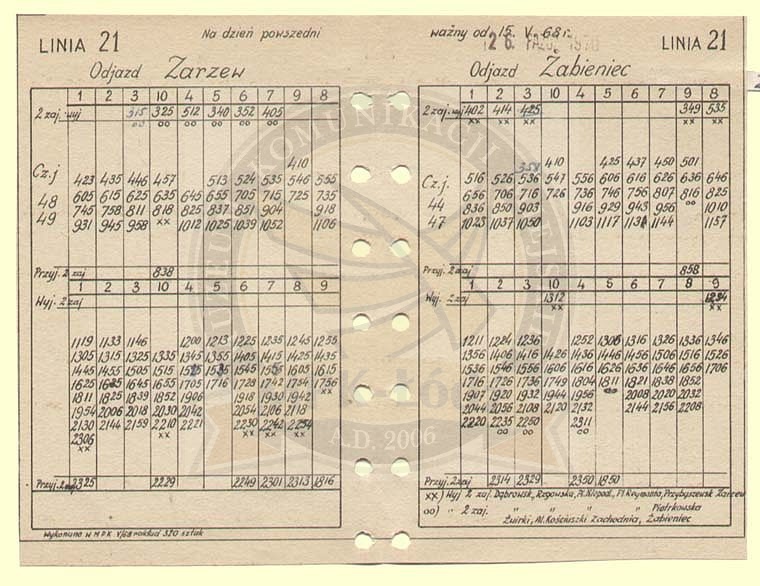 LINIA 21
Na dzień powszedni
Odjazd Zarzew
1 2 3 10 4 5 6 7 9 8
2 zaj. wyj 315 325 512 340 352 405
oo oo oo oo oo oo
410
Cz.j 423 435 446 457 513 524 535 546 555
48 605 615 625 635 645 655 705 715 725 735
49 745 758 811 818 825 837 851 904 918
931 945 958 xx 1012 1025 1039 1052 1106
Przyj. 2 zaj 838
1 2 3 10 4 5 6 7 9 8
Wyj. 2 zaj
1119 1133 1146 1200 1213 1225 1235 1245 1255
1305 1315 1325 1335 1345 1355 1405 1415 1425 1435
1445 1455 1505 1515 1545 1605 1615
1625 1655 1705 1716 1728 1742 1754 1756
1811 1825 1839 1852 1906 1918 1930 1942 xx
1954 2006 2018 2030 2042 2054 2106 2118
2130 2144 2159 2210 2221 2230 2242 2254
2306 xx xx xx xx
xx
Przyj. 2325 2229 2249 2301 2313 1816
Wykonano w M.P.K. V/68 nakład 320 sztuk
ważny od 15. V. 68 r.
26. PAŹDZ. 1970
LINIA 21
Odjazd Żabieniec
1 2 3 10 4 5 6 7 9 8
2 zaj. wyj 402 414 425 349 535
xx xx xx xx xx
410 425 437 450 501
Cz.j. 516 526 536 547 556 606 616 626 636 646
44 656 706 716 726 736 746 756 807 816 825
47 836 850 903 916 929 943 956 oo 1010
1023 1037 1050 1103 1117 1144 1157
Przyj. 2 zaj 858
1 2 3 10 4 5 6 7 8 9
Wyj. 2 zaj 1312
xx xx
1211 1224 1236 1252 1316 1326 1336 1346
1356 1406 1416 1426 1436 1446 1456 1506 1516 1526
1536 1546 1556 1606 1616 1626 1636 1646 1656 1706
1716 1726 1736 1749 1804 1811 1821 1838 1852
1907 1920 1932 1944 1956 oo 2008 2020 2032
2044 2056 2108 2120 2132 2144 2156 2208
2220 2235 2250 2311
oo oo oo
Przyj. 2 zaj 2314 2329 2350 1850
xx) Wyj 2 zaj. Dąbrowsk., Rzgowska, Pl. Niepodl., Pl Reymonta, Przybyszewsk Zarzew
oo) " 2 zaj. " " " " Piotrkowska
Żwirki, Al. Kościuszki Zachodnia, Żabieniec
A.D. 2006